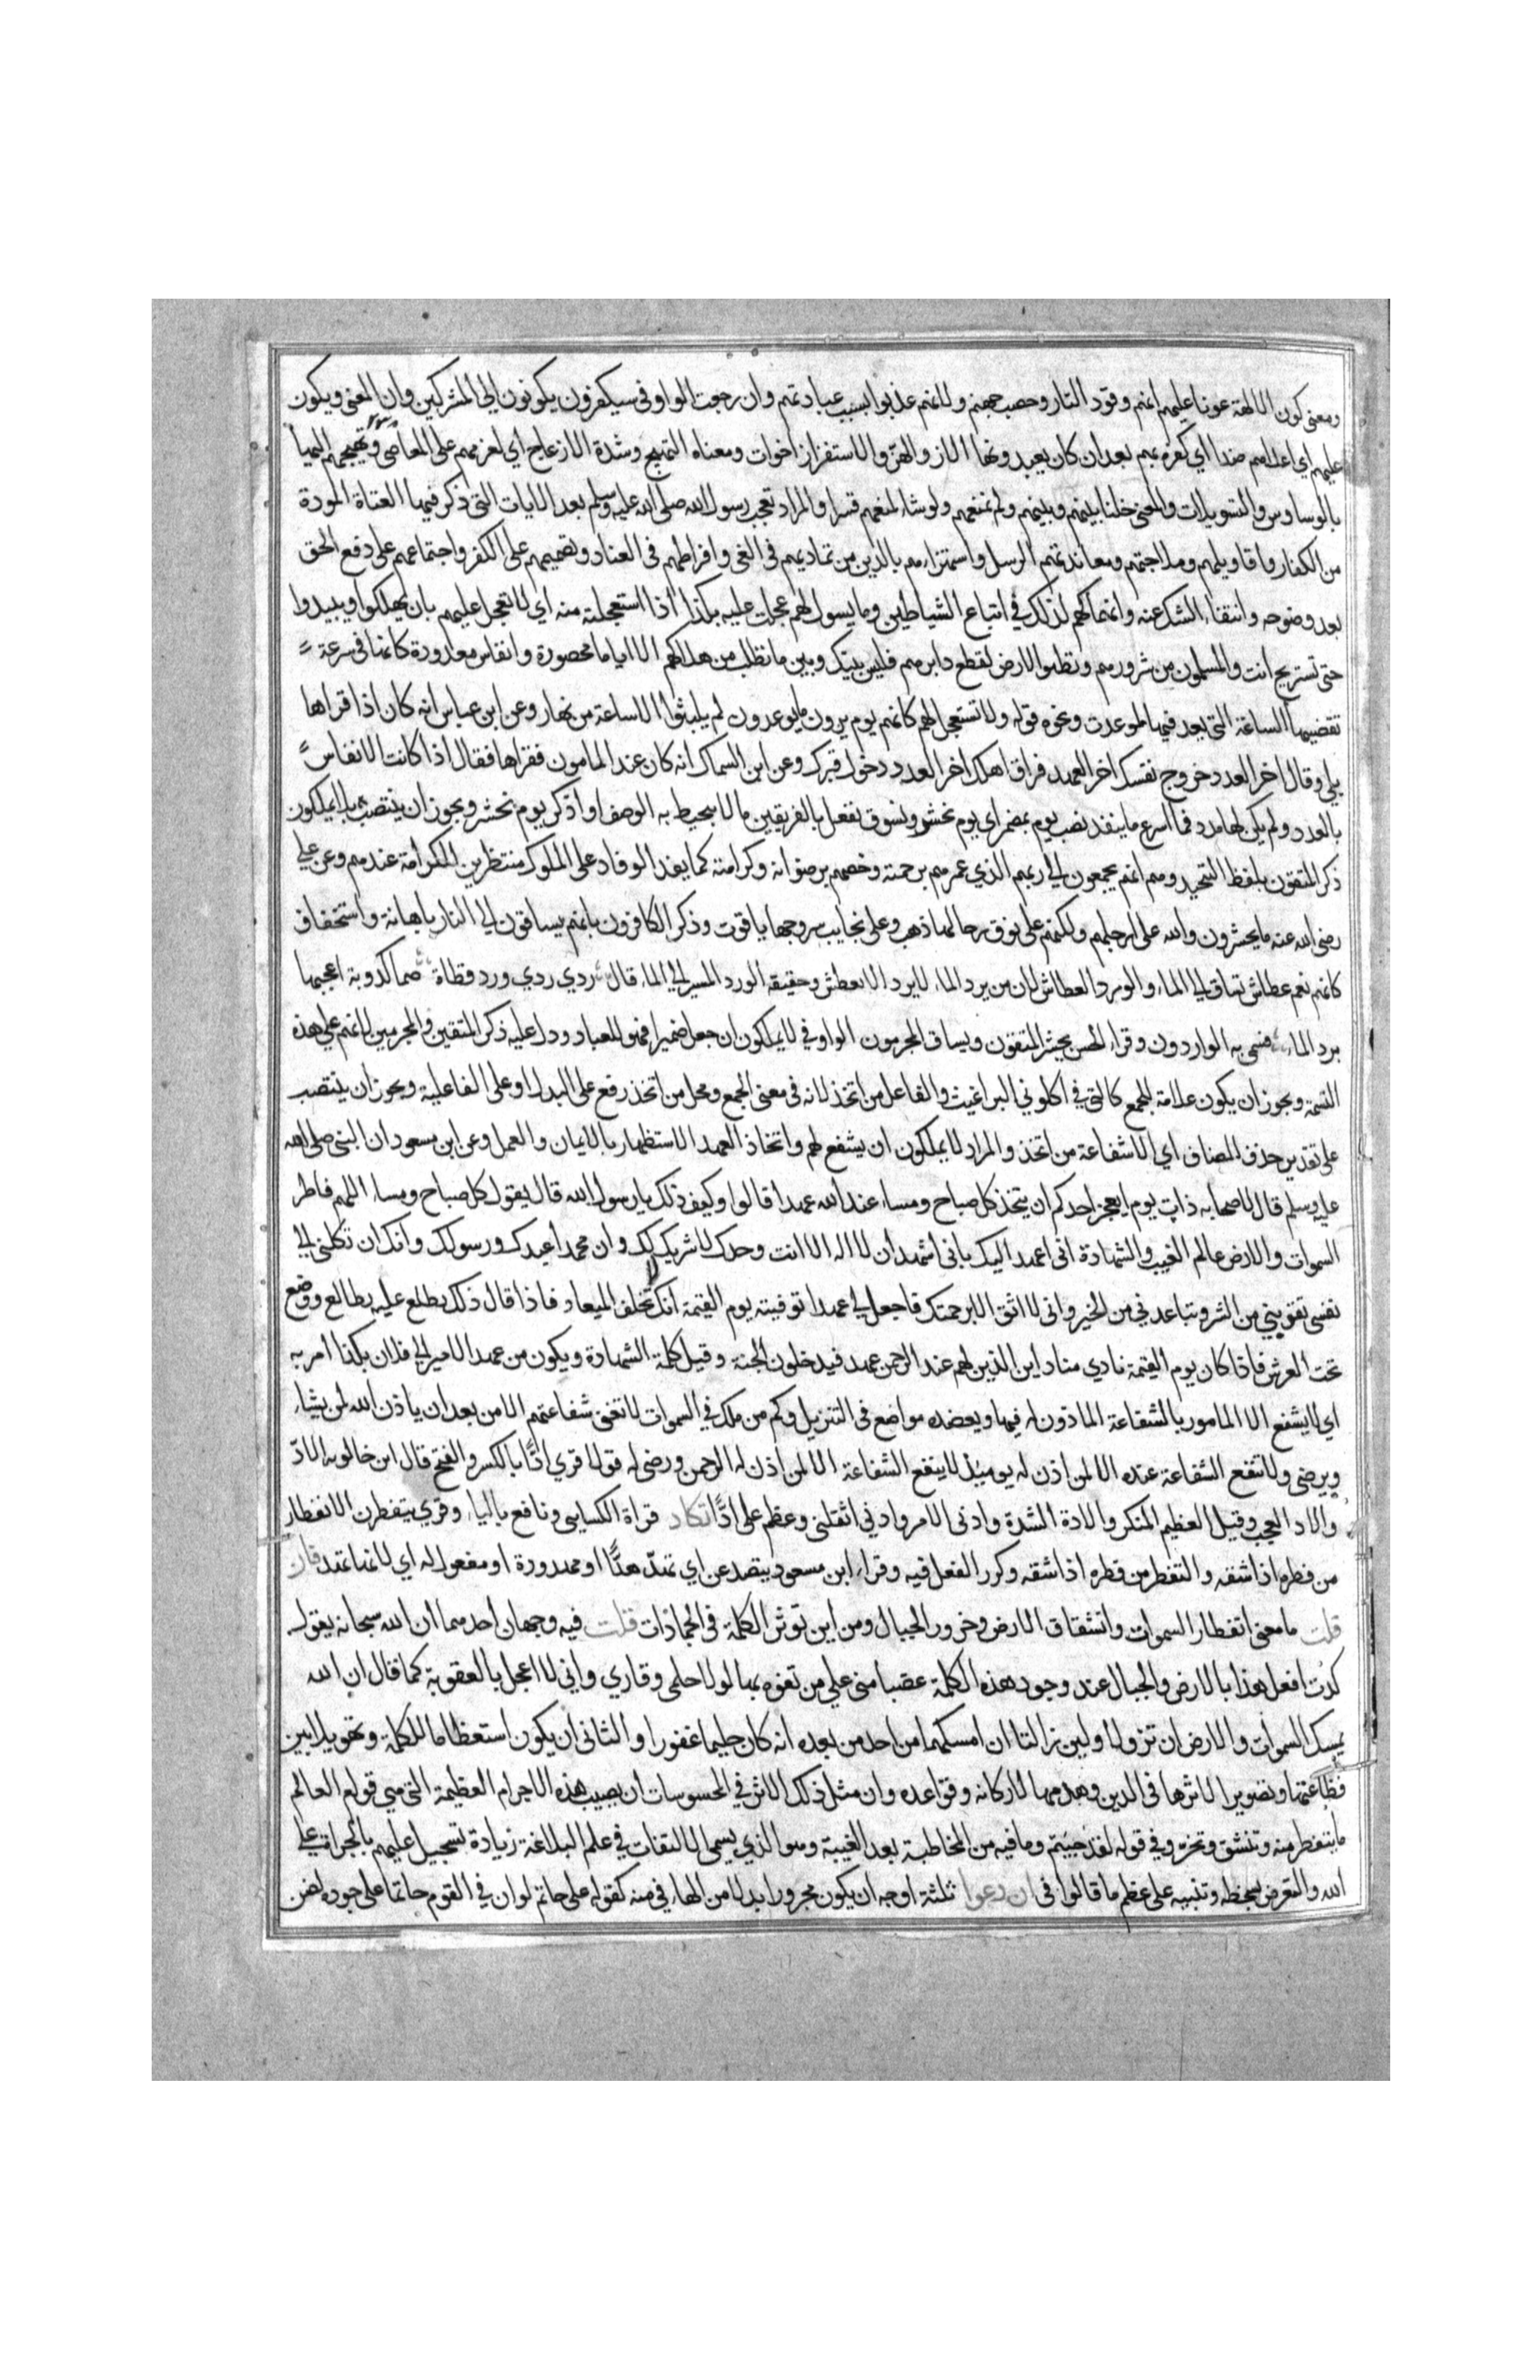 ومعنى كون الالهة عونا عليهم انهم وقود النار وحصب جهنم ولانهم عذبوا بسبب عبادتهم وان رجعت الواو في سيكفرون يكونون الى المشركين وان المعنى ويكون
عليهم اي اعداءهم ضدا اي كفرة بهم بعد ان كان يعبدونها الاز والهز والاستفزاز اخوات ومعناه التهييج وشدة الازعاج اي تغريهم على المعاصي وتهيجهم لها
بالوساوس والتسويلات والمعنى خلينا بينهم وبينهم ولم نمنعهم ولو شاء لمنعهم قسرا والمراد تعجب رسول الله صلى الله عليه وسلم بعد الايات التي ذكر فيها العتاة المردة
من الكفار واقاويلهم وملاجتهم ومعاندتهم الرسل واستهزاءهم بالدين من تماديهم في الغي وافراطهم في العناد وتصميمهم على الكفر واجتماعهم على دفع الحق
بعد وضوحه وانتفاء الشك عنه وانهماكهم لذلك في اتباع الشياطين وما يسول لهم عجلت عليه بكذا اذا استعجلته منه اي لا تعجل عليهم بان يهلكوا ويبيدوا
حتى تستريح انت والمسلمون من شرورهم وتطهر الارض بقطع دابرهم فليس بينك وبين ما تطلب من هلاكهم الا اياما محصورة وانفاس معدودة كانها في سرعة
تقضيها الساعة التي بعد فيها لو عدت ونحوه قوله ولا تستعجل لهم كانهم يوم يرون ما يوعدون لم يلبثوا الا ساعة من نهار وعن ابن عباس انه كان اذا قراها
بكى وقال اخر العدد خروج نفسك اخر العدد فراق اهلك اخر العدد دخول قبرك وعن ابن السماك انه كان عند المامون فقراها فقال اذا كانت الانفاس
بالعدد ولم يكن لها مدد فما اسرع ما ينفد نصب يوم بمضمر اي يوم نحشر ونسوق نفعل بالفريقين ما لا يحيط به الوصف او اذكر يوم نحشر ويجوز ان ينتصب بلا يملكون
ذكر المتقون بلفظ التبجيل وهم انهم يجمعون الى ربهم الذي غمرهم برحمته وخصهم برضوانه وكرامته كما يفد الوفاد على الملوك منتظرين للكرامة عندهم وعن علي
رضي الله عنه ما يحشرون والله على ارجلهم ولكنهم على نوق رحالها ذهب وعلى نجايب سروجها ياقوت وذكر الكافرون بانهم يساقون الى النار باهانة واستخفاف
كانهم نعم عطاش تساق الى الماء والورد العطاش لان من يرد الماء لا يرد الا لعطش وحقيقة الورد المسير الى الماء قال ردي ردي ورد قطاة صما كدرية اعجبها
برد الماء فسمي به الواردون وقراء الحسن يحشر المتقون ويساق المجرمون الواو في لا يملكون ان جعل ضميرا فهو للعباد ودل عليه ذكر المتقين والمجرمين لانهم على هذه
القسمة ويجوز ان يكون علامة للجمع كالتي في اكلوني البراغيث والفاعل من اتخذ لانه في معنى الجمع ومحل من اتخذ رفع على البدل او على الفاعلية ويجوز ان ينتصب
على تقدير حذف المضاف اي الا شفاعة من اتخذ والمراد لا يملكون ان يشفع لهم واتخاذ العهد الاستظهار بالايمان والعمل وعن ابن مسعود ان النبي صلى الله
عليه وسلم قال لاصحابه ذات يوم ايعجز احدكم ان يتخذ كل صباح ومساء عند الله عهدا قالوا وكيف ذلك يا رسول الله قال يقول كل صباح ومساء اللهم فاطر
السموات والارض عالم الغيب والشهادة اني اعهد اليك باني اشهد ان لا اله الا انت وحدك لا شريك لك وان محمدا عبدك ورسولك وانك ان تكلني الى
نفسي تقربني من الشر وتباعدني من الخير واني لا اثق الا برحمتك فاجعل لي عهدا توفينيه يوم القيمة انك لا تخلف الميعاد فاذا قال ذلك يطلع عليه بطالع ووضع
تحت العرش فاذا كان يوم القيمة نادي مناد اين الذين لهم عند الرحمن عهد فيدخلون الجنة وقيل كلمة الشهادة ويكون من عهد الامير الى فلان بكذا امر به
اي لا يشفع الا المامور بالشفاعة الماذون له فيها ويعضده مواضع في التنزيل وكم من ملك في السموات لا تغني شفاعتهم الا من بعد ان ياذن الله لمن يشاء
ويرضى ولا تنفع الشفاعة عنده الا لمن اذن له يوميذ لا ينفع الشفاعة الا لمن اذن له الرحمن ورضي له قولا قري ادًّا بالكسر والفتح قال ابن خالويه الادّ
والاد العجب وقيل العظيم المنكر والادة الشدة وادني الامر وادني اثقلني وعظم علي ادًّا تكاد قراة الكسايي ونافع بالياء وقري ينفطرن الانفطار
من فطره اذا شقه والتفطر من فطره اذا شققه وكرر الفعل فيه وقراء ابن مسعود يتصدعن اي تهدّ هدًّا او مهدودة او مفعول له اي لانها تهد فان
قلت ما معنى انفطار السموات وانشقاق الارض وخرور الجبال ومن اين توثر الكلمة في الجمادات قلت فيه وجهان احدهما ان الله سبحانه يقول
كدت افعل هذا بالارض والجبال عند وجود هذه الكلمة غضبا مني على من تفوه بها لولا حلمي وقاري واني لا اعجل بالعقوبة كما قال ان الله
يمسك السموات والارض ان تزولا ولين زالتا ان امسكهما من احد من بعده انه كان حليما غفورا والثاني ان يكون استعظاما للكلمة وتهويلا بين
فظاعتها وتصوير لاثرها في الدين وهدمها لاركانه وقواعده وان مثل ذلك الاثر في المحسوسات ان يصيب هذه الاجرام العظيمة التي هي قوام العالم
ما ينفطر منه وتنشق وتخر وفي قوله لقد جيتم وما فيه من المخاطبة بعد الغيبة وهو الذي يسمى الالتفات في علم البلاغة زيادة تسجيل عليهم بالجراة على
الله والتعرض لسخطه وتنبيه على عظم ما قالوا في ان دعوا ثلثة اوجه ان يكون مجرورا بدلا من الهاء في منه كقوله على حاتم لو ان في القوم حاتما على جوده لضن